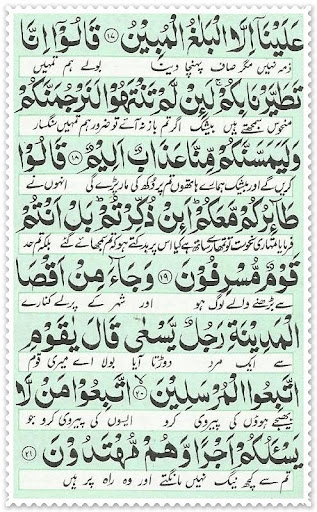 عَلَيْنَآ اِلَّا الْبَلٰغُ الْمُبِيْنُ ۝۱۷ قَالُوْٓا اِنَّا
ذمہ نہیں مگر صاف پہنچا دینا بولے ہم تمہیں
تَطَيَّرْنَا بِكُمْ ۚ لَئِنْ لَّمْ تَنْتَهُوْا لَنَرْجُمَنَّكُمْ
منحوس سمجھتے ہیں بیشک اگر تم باز نہ آئے تو ضرور ہم تمہیں سنگسار
وَلَيَمَسَّنَّكُمْ مِّنَّا عَذَابٌ اَلِيْمٌ ۝۱۸ قَالُوْا
کریں گے اور بیشک ہمارے ہاتھوں تم پر دکھ کی مار پڑے گی انہوں نے
طَآئِرُكُمْ مَّعَكُمْ ؕ اَئِنْ ذُكِّرْتُمْ ؕ بَلْ اَنْتُمْ
فرمایا تمہاری نحوست تو تمہارے ساتھ ہے کیا اس پر بدکتے ہو کہ تم سمجھائے گئے بلکہ تم حد
قَوْمٌ مُّسْرِفُوْنَ ۝۱۹ وَجَآءَ مِنْ اَقْصَا
سے بڑھنے والے لوگ ہو اور شہر کے پرلے کنارے
الْمَدِيْنَةِ رَجُلٌ يَّسْعٰى قَالَ يٰقَوْمِ
سے ایک مرد دوڑتا آیا بولا اے میری قوم
اتَّبِعُوا الْمُرْسَلِيْنَ ۝۲۰ اتَّبِعُوْا مَنْ لَّا
بھیجے ہوؤں کی پیروی کرو ایسوں کی پیروی کرو جو
يَسْئَلُكُمْ اَجْرًا وَّهُمْ مُّهْتَدُوْنَ ۝۲۱
تم سے کچھ نیگ نہیں مانگتے اور وہ راہ پر ہیں